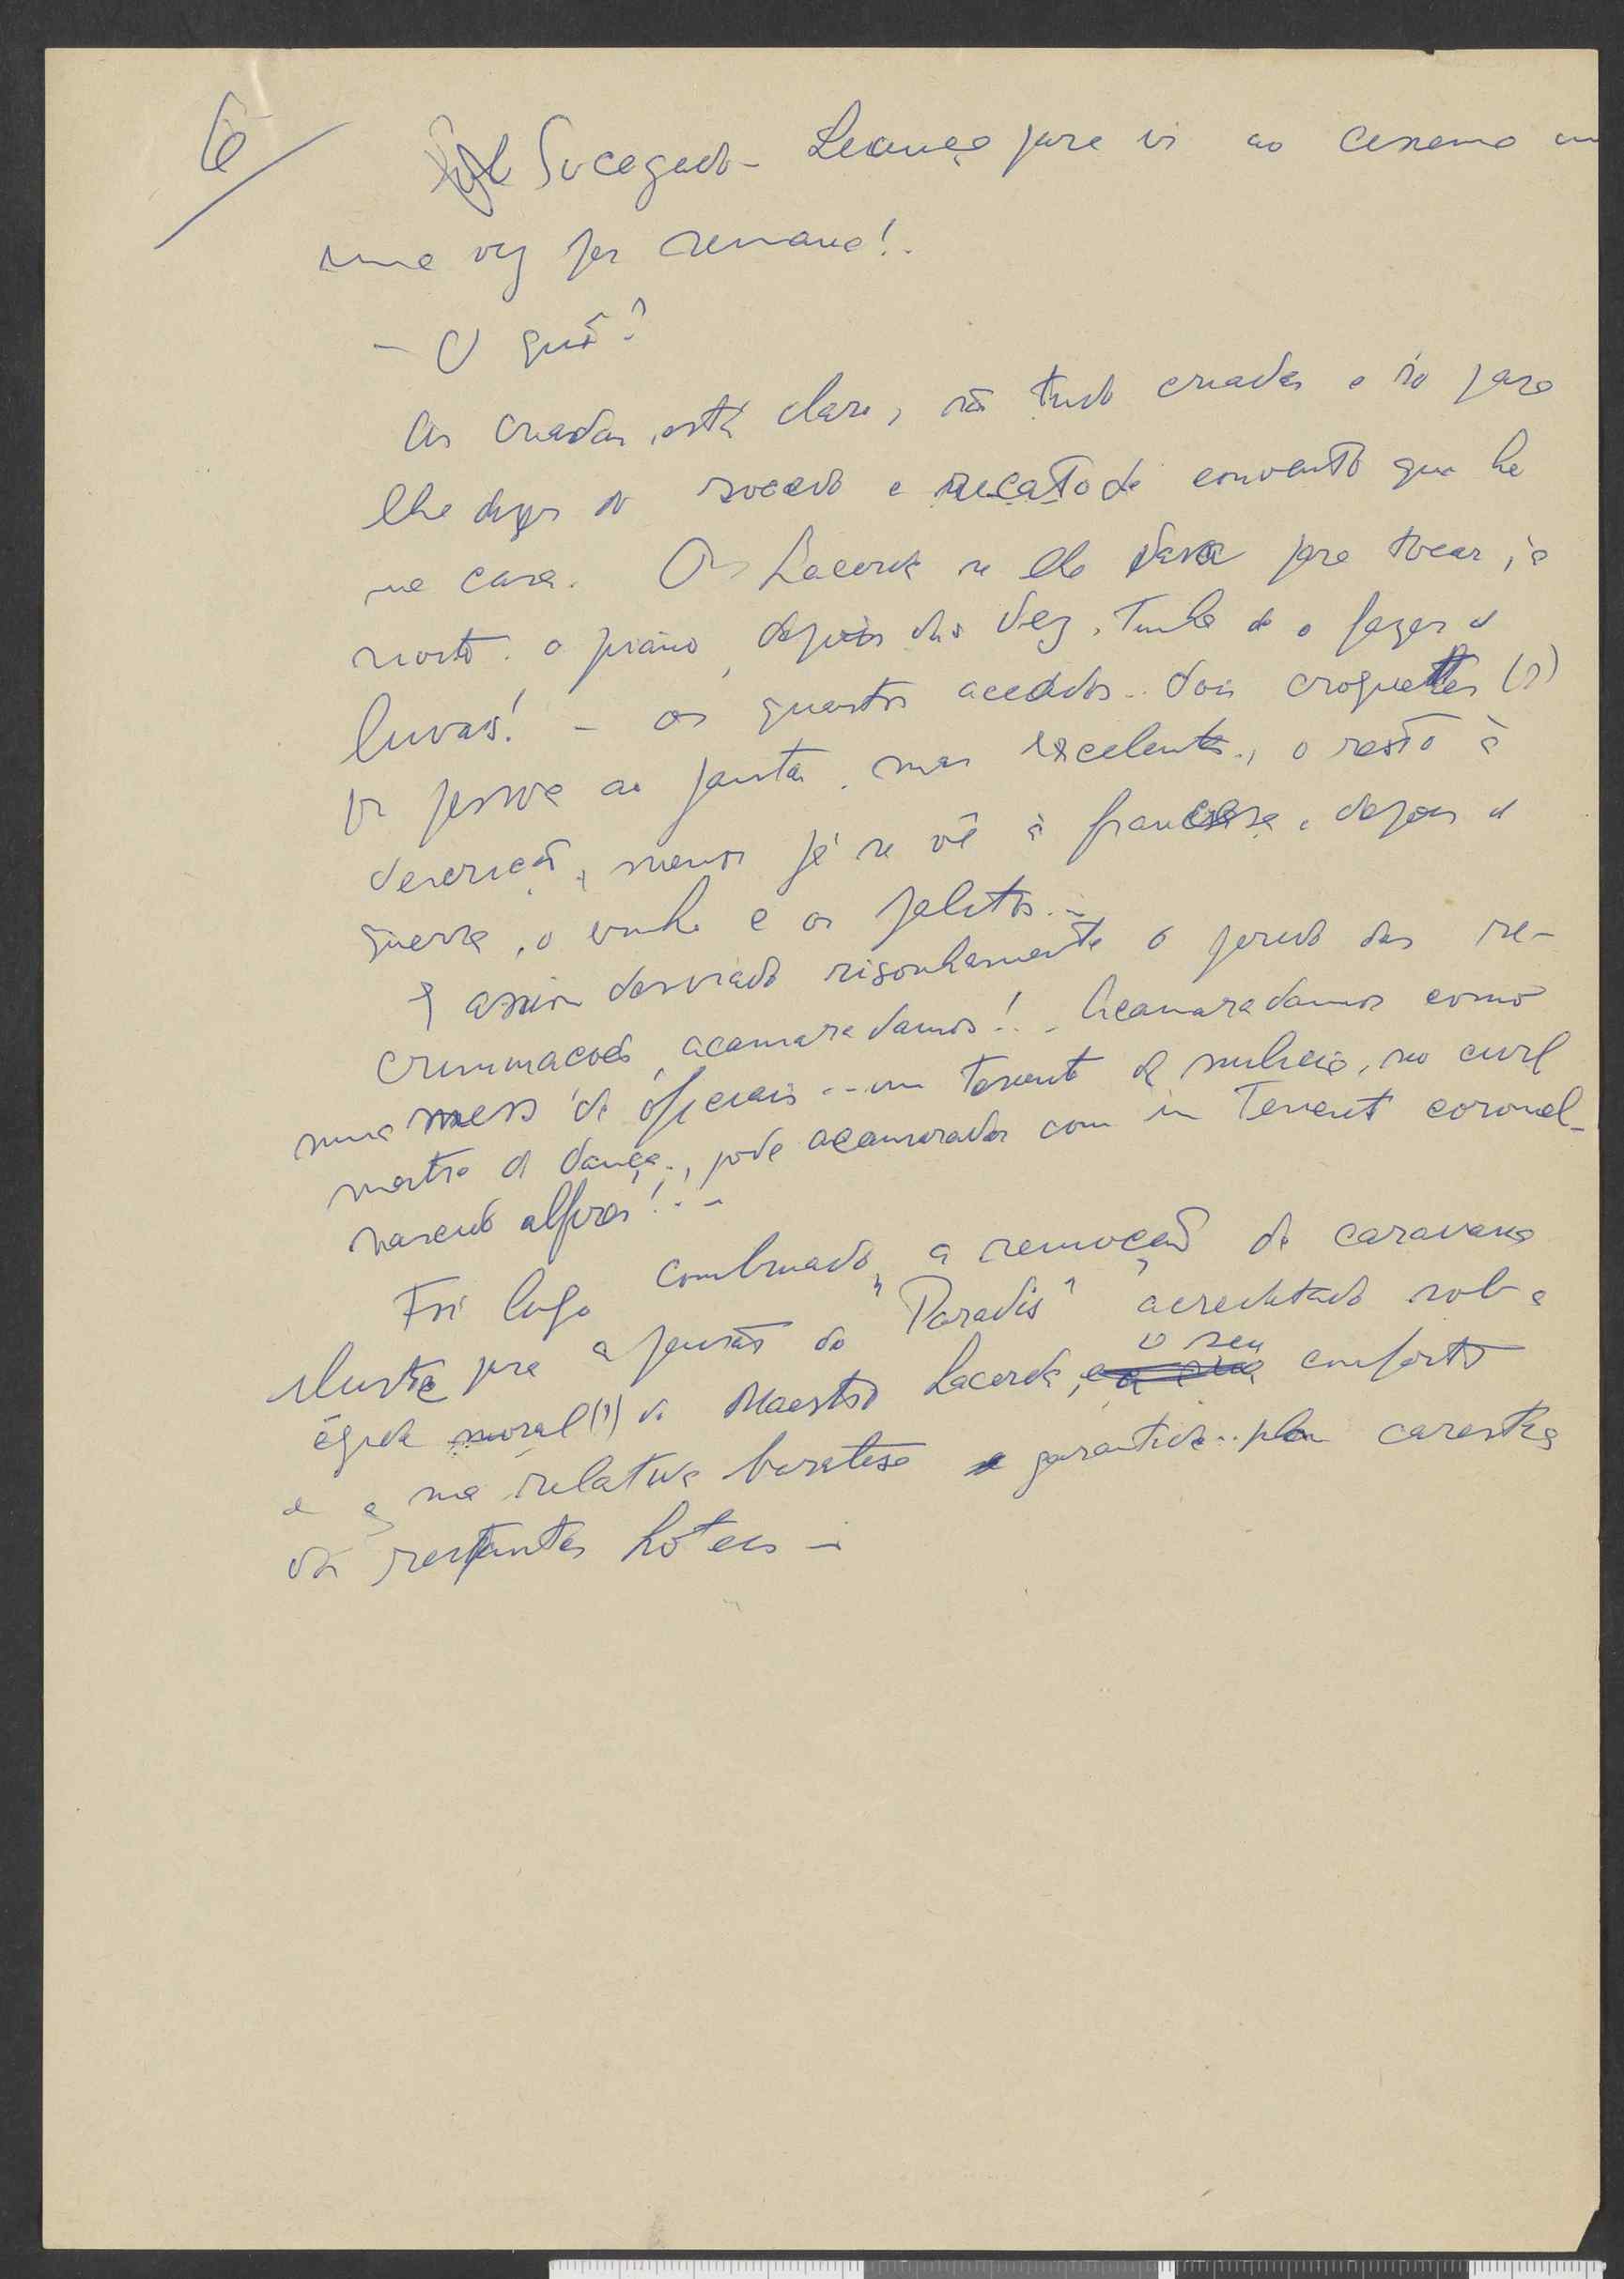 6
Socegado - Licença para ir ao cinema
uma vez por semana!.
- O quê?
As criadas, está claro, são tudo criadas e só para
lhe dizer do socego e recato de convento que ha
na casa. O Lacerda se lhe dava para tocar, à
noite o piano, depois das dez, tinha de o fazer de
luvas! - os quartos aceados.. dois croquettes (?)
por pessoa ao jantar, mas excelentes, o resto à
descrição, menos já se vê à francesa, depois da
guerra, o vinho e os palitos..
E assim desviado risonhamente o perigo das re-
criminações, acamaradamos!.. Acamaradamos como
numa mess de oficiais.. um tenente de milicia, no civil
mestre de dança.., pode acamaradar com um Tenente coronel
nascido alferes!..-
Foi logo combinado, a remoção da caravana
ilustre para a pensão do "Paradis" acreditado sob a
égide moral (?) do Maestro Lacerda, o seu conforto
e a sua relativa barateza garantida.. pela carestia
dos restantes hoteis -